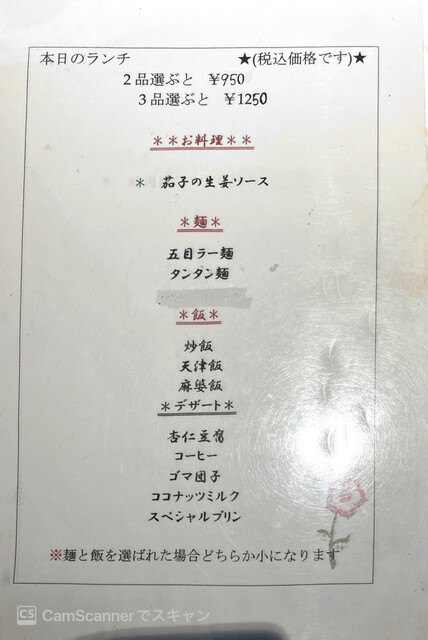 本日のランチ ★(税込価格です)★
2品選ぶと ¥950
3品選ぶと ¥1250
＊＊お料理＊＊
＊ 茄子の生姜ソース
＊麺＊
五目ラー麺
タンタン麺
＊飯＊
炒飯
天津飯
麻婆飯
＊デザート＊
杏仁豆腐
コーヒー
ゴマ団子
ココナッツミルク
スペシャルプリン
※麺と飯を選ばれた場合どちらか小になります
CS CamScannerでスキャン